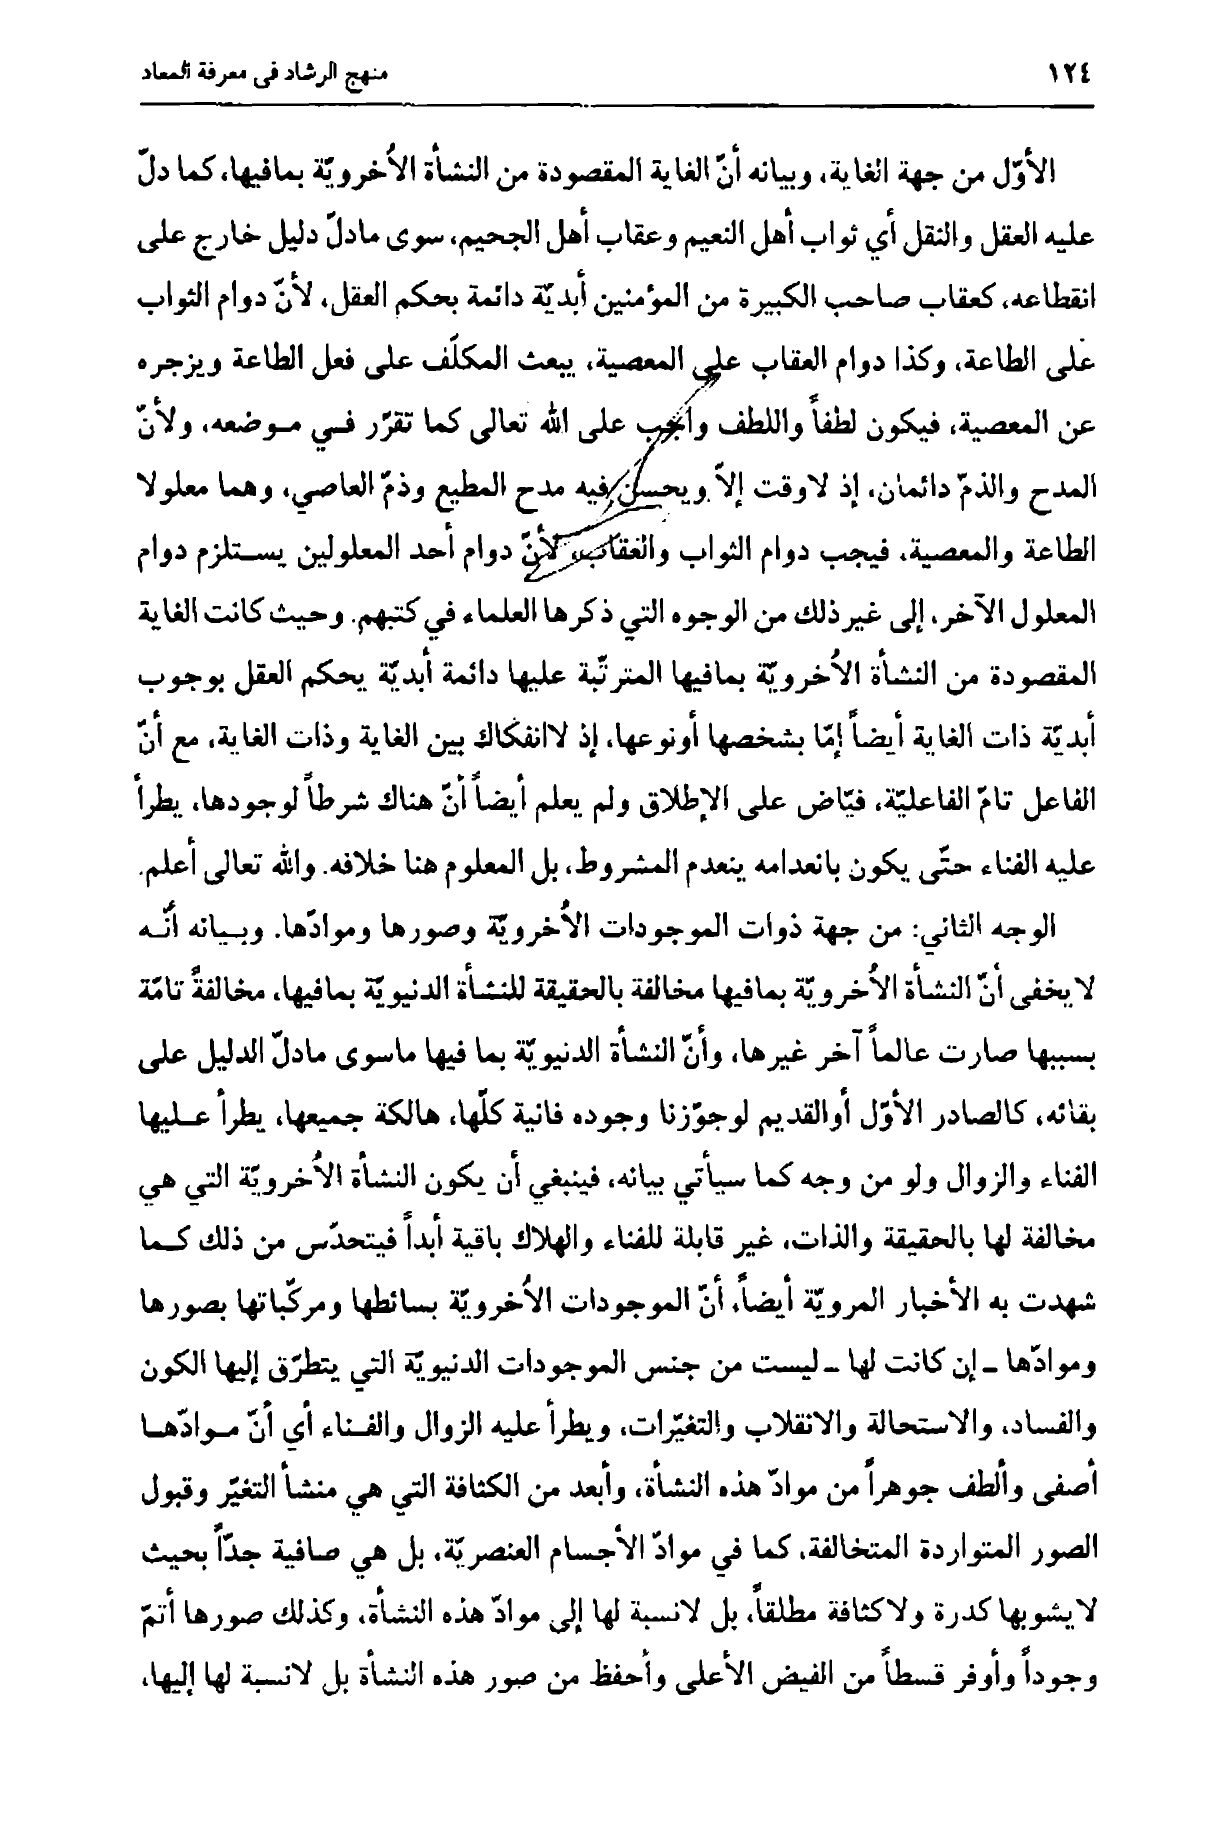 ١٢٤ منهج الرشاد في معرفة المعاد
الأوّل من جهة الغاية، وبيانه أنّ الغاية المقصودة من النشأة الأُخرويّة بمافيها، كما دلّ
عليه العقل والنقل أي ثواب أهل النعيم وعقاب أهل الجحيم، سوى مادلّ دليل خارج على
انقطاعه، كعقاب صاحب الكبيرة من المؤمنين أبديّة دائمة بحكم العقل، لأنّ دوام الثواب
على الطاعة، وكذا دوام العقاب على المعصية، يبعث المكلّف على فعل الطاعة ويزجره
عن المعصية، فيكون لطفاً واللطف واجب على الله تعالى كما تقرّر في موضعه، ولأنّ
المدح والذمّ دائمان، إذ لاوقت إلاّ ويحسن فيه مدح المطيع وذمّ العاصي، وهما معلولا
الطاعة والمعصية، فيجب دوام الثواب والعقاب، لأنّ دوام أحد المعلولين يستلزم دوام
المعلول الآخر، إلى غيرذلك من الوجوه التي ذكرها العلماء في كتبهم. وحيث كانت الغاية
المقصودة من النشأة الأُخرويّة بمافيها المترتّبة عليها دائمة أبديّة يحكم العقل بوجوب
أبديّة ذات الغاية أيضاً إمّا بشخصها أونوعها، إذ لاانفكاك بين الغاية وذات الغاية، مع أنّ
الفاعل تامّ الفاعليّة، فيّاض على الإطلاق ولم يعلم أيضاً أنّ هناك شرطاً لوجودها، يطرأ
عليه الفناء حتّى يكون بانعدامه ينعدم المشروط، بل المعلوم هنا خلافه. والله تعالى أعلم.
الوجه الثاني: من جهة ذوات الموجودات الأُخرويّة وصورها وموادّها. وبيانه أنّه
لايخفى أنّ النشأة الأُخرويّة بمافيها مخالفة بالحقيقة للنشأة الدنيويّة بمافيها، مخالفةً تامّة
بسببها صارت عالماً آخر غيرها، وأنّ النشأة الدنيويّة بما فيها ماسوى مادلّ الدليل على
بقائه، كالصادر الأوّل أوالقديم لوجوّزنا وجوده فانية كلّها، هالكة جميعها، يطرأ عليها
الفناء والزوال ولو من وجه كما سيأتي بيانه، فينبغي أن يكون النشأة الأُخرويّة التي هي
مخالفة لها بالحقيقة والذات، غير قابلة للفناء والهلاك باقية أبداً فيتحدّس من ذلك كما
شهدت به الأخبار المرويّة أيضاً، أنّ الموجودات الأُخرويّة بسائطها ومركّباتها بصورها
وموادّها ـ إن كانت لها ـ ليست من جنس الموجودات الدنيويّة التي يتطرّق إليها الكون
والفساد، والاستحالة والانقلاب والتغيّرات، ويطرأ عليه الزوال والفناء أي أنّ موادّها
أصفى وألطف جوهراً من موادّ هذه النشأة، وأبعد من الكثافة التي هي منشأ التغيّر وقبول
الصور المتواردة المتخالفة، كما في موادّ الأجسام العنصريّة، بل هي صافية جدّاً بحيث
لايشوبها كدرة ولاكثافة مطلقاً، بل لانسبة لها إلى موادّ هذه النشأة، وكذلك صورها أتمّ
وجوداً وأوفر قسطاً من الفيض الأعلى وأحفظ من صور هذه النشأة بل لانسبة لها إليها،